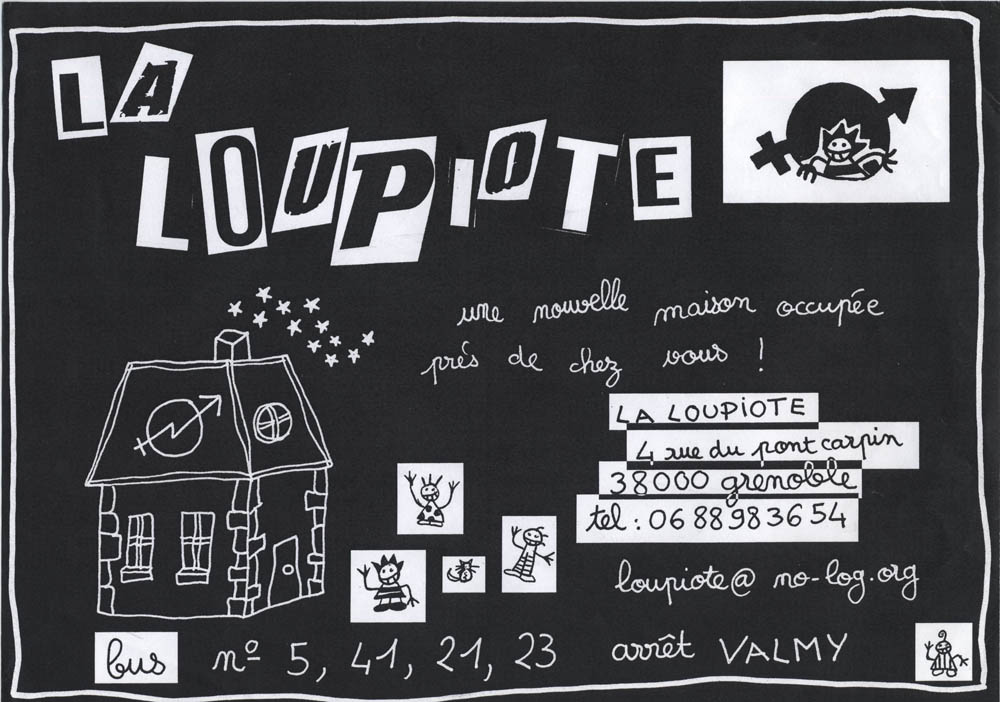 LA
LOUPIOTE
une nouvelle maison occupée
prés de chez vous !
LA LOUPIOTE
4 rue du pont carpin
38000 grenoble
tel : 06 88 98 36 54
loupiote@no-log.org
bus nº 5, 41, 21, 23 arrêt VALMY